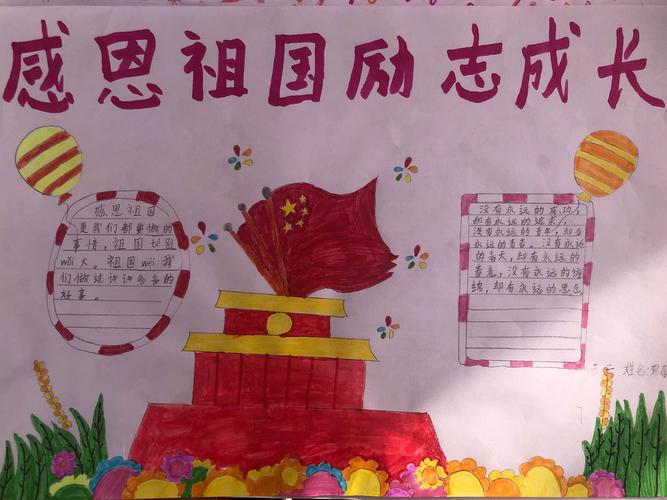 感恩祖国励志成长
感恩祖国
是我们都要做的
事情，祖国
wěi大。祖国wèi我
们做这许许多多的
好事。
没有永远的成功，
却有永远的追求，
没有永远的青年，却有
永远的青春。没有永远
的春天，却有永远的
春意，没有永远的缠
绵，却有永远的思念
姓名